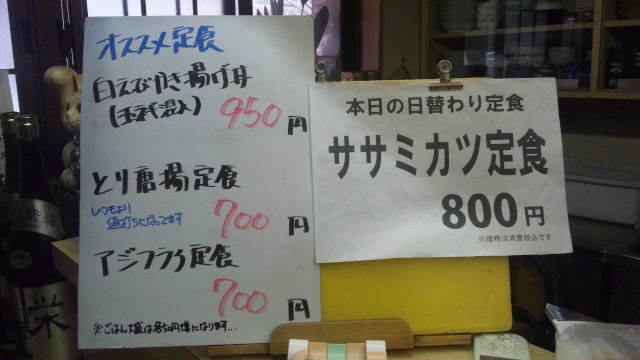 オススメ定食
白えびかき揚げ丼
950円
とり唐揚定食
いつもより
値打ちになってます
700円
アジフライ定食
700円
※ごはん大盛は各50円増になります…
本日の日替わり定食
ササミカツ定食
800円
※価格は消費税込です
栄